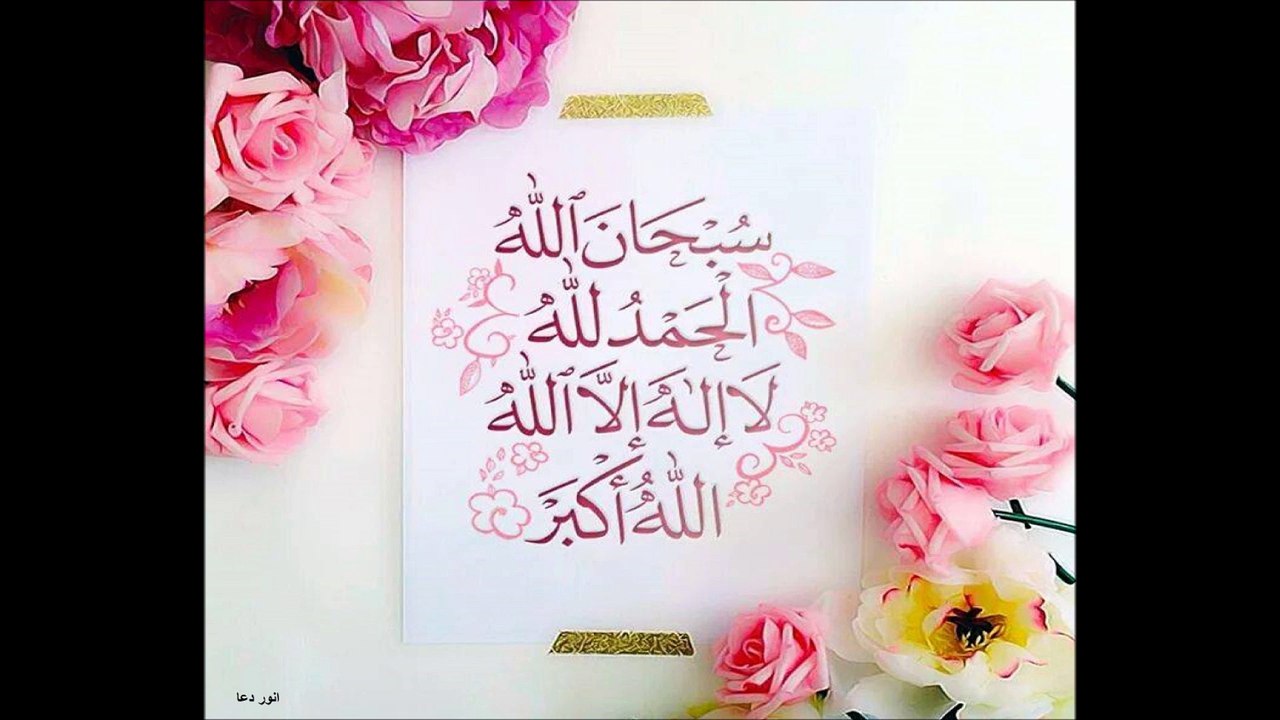 سُبْحَانَ ٱللّٰهُ
الْحَمْدُ للّٰهُ
لَا إِلٰهَ إِلَّا ٱللّٰهُ
اللّٰهُ أَكْبَرْ
انور دعا